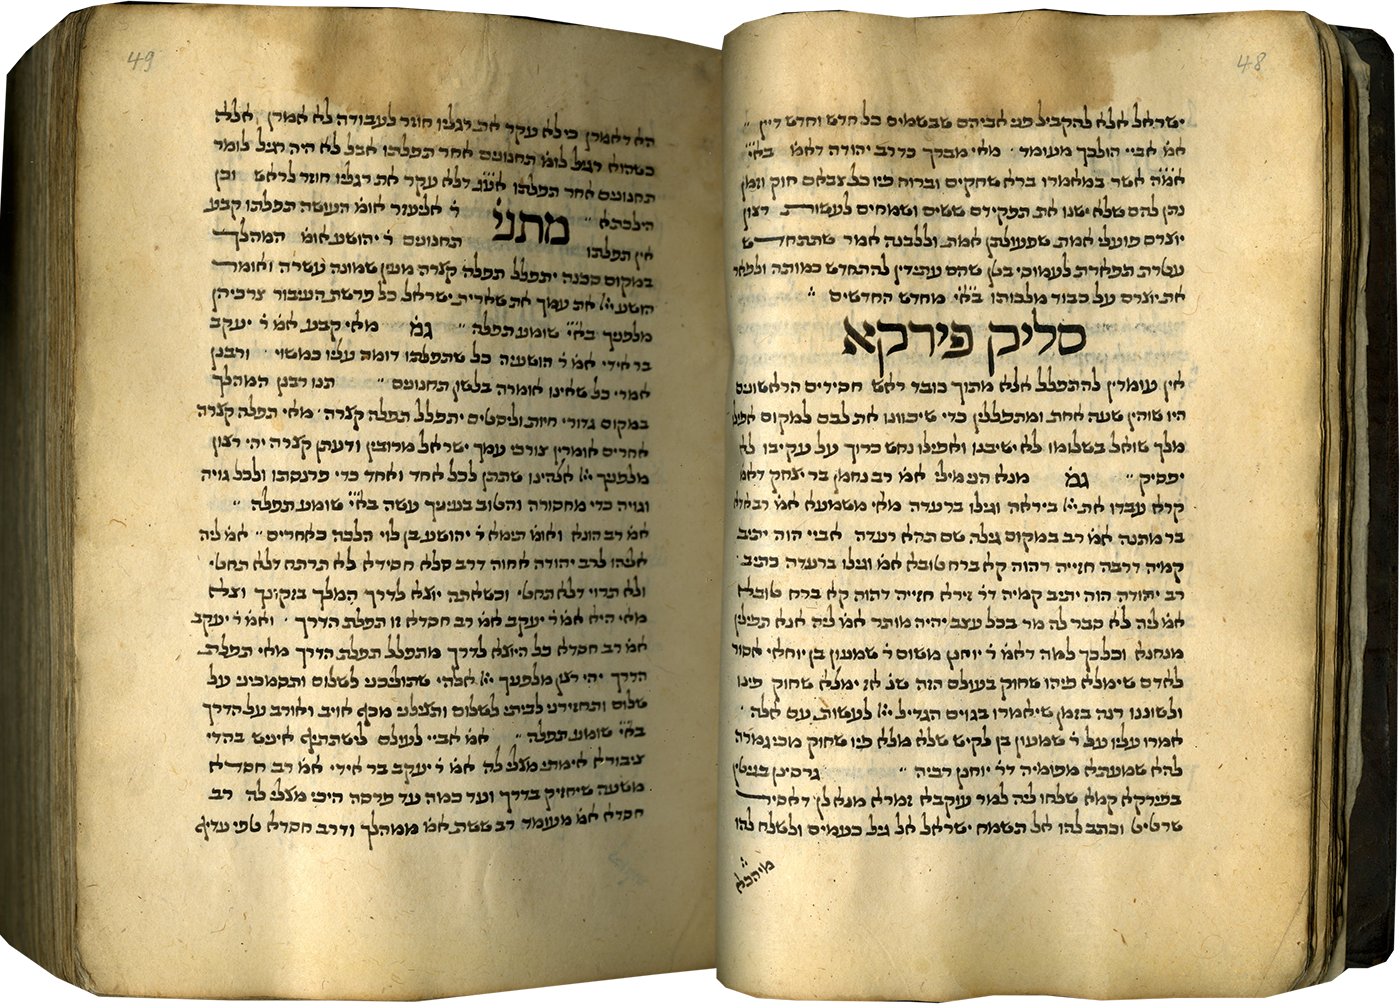 48
ישראל אלא להקביל פני אביהם שבשמים כל חדש וחדש דיין
אמ׳ אביי הולכך מעומד׳ מאי מברך כדרב יהודה דאמ׳ בא״י
אמ״ה אשר במאמרו ברא שחקים וברוח פיו כל צבאם חוק וזמן
נתן להם שלא ישנו את תפקידם ששים ושמחים לעשות רצון
יוצרם פועלי אמת שפעולתן אמת וללבנה אמר שתתחדש
עטרת תפארת לעמוסי בטן שהם עתידין להתחדש כמותה ולפאר
את יוצרם על כבוד מלכותו בא״י מחדש החדשים
סליק פירקא
אין עומדין להתפלל אלא מתוך כובד ראש חסידים הראשונים
היו שוהין שעה אחת ומתפללין כדי שיכוונו את לבם למקום אפילו
מלך שואל בשלומו לא ישיבנו ואפילו נחש כרוך על עקיבו לא
יפסיק גמ׳ מנא הני מילי אמ׳ רב נחמן בר יצחק דאמ׳
קרא עבדו את ביראה וגילו ברעדה מאי משמעא אמ׳ רב אדא
בר מתנה אמ׳ רב במקום גילה שם תהא רעדה אביי הוה יתיב
קמיה דרבה חזייה דהוה קא ברח טובא אמ׳ וגילו ברעדה כתיב
רב יהודה הוה יתיב קמיה דר׳ זירא חזייה דהוה קא ברח טובא
אמ׳ ליה לא סבר לה מר בכל עצב יהיה מותר אמ׳ ליה אנא תפילין
מנחנא וכלכך למה דאמ׳ ר׳ יוחנן משום ר׳ שמעון בן יוחאי אסור
לאדם שימלא פיהו שחוק בעולם הזה שנ׳ אז ימלא שחוק פינו
ולשוננו רנה בזמן שיאמרו בגוים הגדיל לעשות עם אלה
אמרו עליו על ר׳ שמעון בן לקיש שלא מלא פיו שחוק מכי גמרה
להא שמעתא מפומיה דר׳ יוחנן רביה גרסינן בגיטין
בפירקא קמא שלחו ליה למר עוקבא זמרא מנא לן דאסיר
שרטיט וכתב להו אל תשמח ישראל אל גיל כעמים ולשלח להו
מיהכא
49
הא דאמרן כי לא עקר את רגליו חוזר לעבודה לא אמרן אלא
כשהוא רגיל לומ׳ תחנונים אחר תפלתו אבל לא היה רגיל לומר
תחנונים אחר תפלתו אע״ג דלא עקר את רגליו חוזר לראש וכן
הילכתא מתני׳ ר׳ אליעזר אומ׳ העושה תפלתו קבע
אין תפלתו תחנונים ר׳ יהושע אומ׳ המהלך
במקום סכנה יתפלל תפלה קצרה מעין שמונה עשרה ואומר
הושע את עמך את שארית ישראל כל פרשת העיבור צרכיהן
מלפניך בא״י שומע תפלה גמ׳ מאי קבע אמ׳ ר׳ יעקב
בר אידי אמ׳ ר׳ הושעיה כל שתפלתו דומה עליו כמשוי ורבנן
אמרי כל שאינו אומרה בלשון תחנונים תנו רבנן המהלך
במקום גדודי חיות וליסטים יתפלל תפלה קצרה מאי תפלה קצרה
אחרים אומרין צורכי עמך ישראל מרובין ודעתן קצרה יהי רצון
מלפניך אלהינו שתתן לכל אחד ואחד כדי פרנסתו ולכל גויה
וגויה כדי מחסורה והטוב בעיניך עשה בא״י שומע תפלה
אמ׳ רב הונא ואומ׳ תימא ר׳ יהושע בן לוי הלכה כאחרים אמ׳ ליה
אליהו לרב יהודה אחוה דרב סלא חסידא לא תרתח דלא תחטי
ולא תרוי דלא תחטי וכשאתה יוצא לדרך המלך בקונך וצא
מאי היא אמ׳ ר׳ יעקב אמ׳ רב חסדא זו תפלת הדרך ואמ׳ ר׳ יעקב
אמ׳ רב חסדא כל היוצא לדרך מתפלל תפלת הדרך מאי תפלת
הדרך יהי רצון מלפניך אלהי שתוליכני לשלום ותסמכיני על
שלום ותחזירני לביתי לשלום ותצילני מכף אויב ואורב על הדרך
בא״י שומע תפלה אמ׳ אביי לעולם לישתתיף איניש בהדי
ציבורא אימתי מצלי לה אמ׳ ר׳ יעקב בר אידי אמ׳ רב חסדא
משעה שיחזיק בדרך ועד כמה עד פרסה היכי מצלי לה רב
חסדא אמ׳ מעומד רב ששת אמ׳ ממהלך ודרב חסדא טפי עדיף